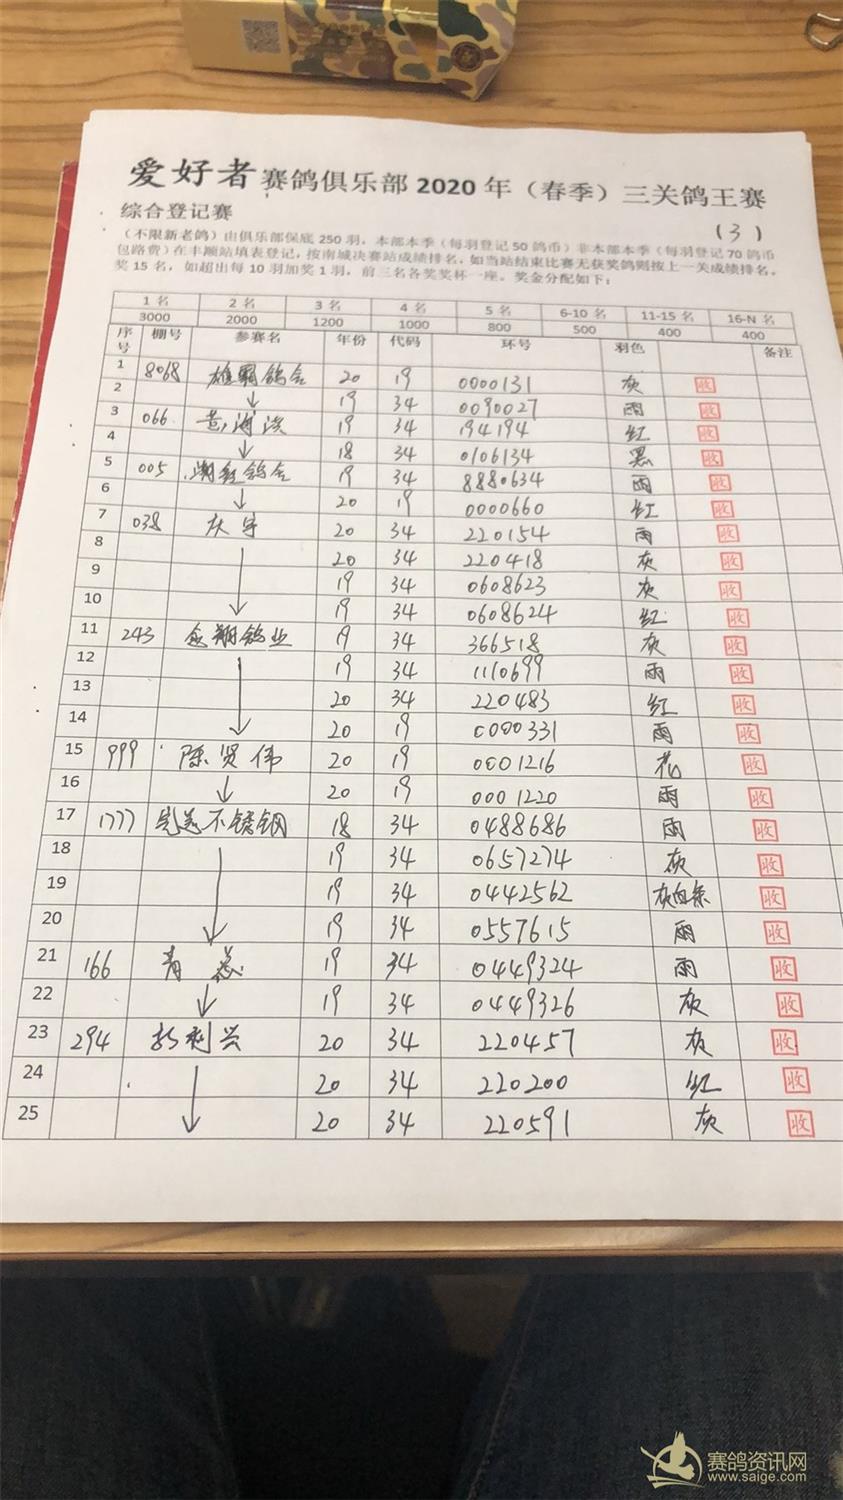 爱好者赛鸽俱乐部2020年（春季）三关鸽王赛
综合登记赛
(3)
（不限新老鸽）由俱乐部保底250羽，本部本季（每羽登记50鸽币）非本部本季（每羽登记70鸽币
包路费）在丰顺站填表登记，按南城决赛站成绩排名，如当站结束比赛无获奖鸽则按上一关成绩排名。
奖15名，如超出每10羽加奖1羽，前三名各奖奖杯一座。奖金分配如下：
1名 2名 3名 4名 5名 6-10名 11-15名 16-N名
3000 2000 1200 1000 800 500 400 400
序号 棚号 参赛名 年份 代码 环号 羽色 备注
1 8068 雄霸鸽舍 20 19 0000131 灰 收
2 19 34 0090027 雨 收
3 066 19 34 194194 红 收
4 18 34 0106134 黑 收
5 005 鸽舍 19 34 8880634 雨 收
6 20 19 0000660 红 收
7 038 庆宇 20 34 220154 雨 收
8 20 34 220418 灰 收
9 19 34 0608623 灰 收
10 19 34 0608624 红 收
11 243 翔鸽业 19 34 366518 灰 收
12 19 34 1110699 雨 收
13 20 34 220483 红 收
14 20 19 0000331 雨 收
15 999 陈贤伟 20 19 0001216 花 收
16 20 19 0001220 雨 收
17 1777 不锈钢 18 34 0488686 雨 收
18 19 34 0657274 灰 收
19 19 34 0442562 灰白条 收
20 19 34 0557615 雨 收
21 166 青 19 34 0449324 雨 收
22 19 34 0449326 灰 收
23 294 利兴 20 34 220457 灰 收
24 20 34 220200 红 收
25 20 34 220591 灰 收
赛鸽资讯网
www.saige.com